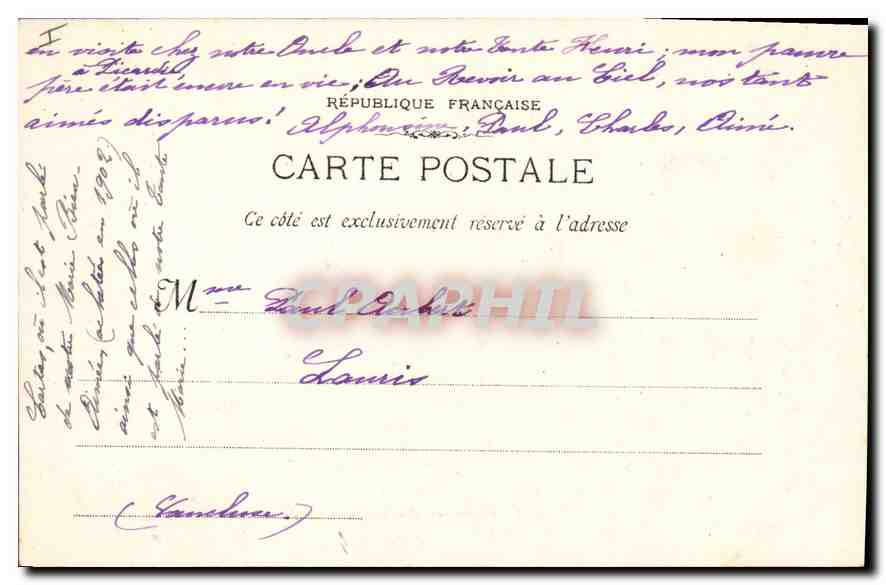 I
en visite chez notre Oncle et notre Tante Henri; mon pauvre
à Picardie
père était encore en vie; Au Revoir au Ciel, nos tant
RÉPUBLIQUE FRANÇAISE
aimés disparus! Alphonsine, Paul, Charles, Aimé.
CARTE POSTALE
Ce côté est exclusivement réservé à l'adresse
Mme Paul
Lauris
(Vaucluse.)
Cartes, où il est parlé
de notre Marie Bien-
Aimée, (achetées en 1902)
ainsi que celles où il
est parlé de notre Tante
Marie...
CPAPHIL